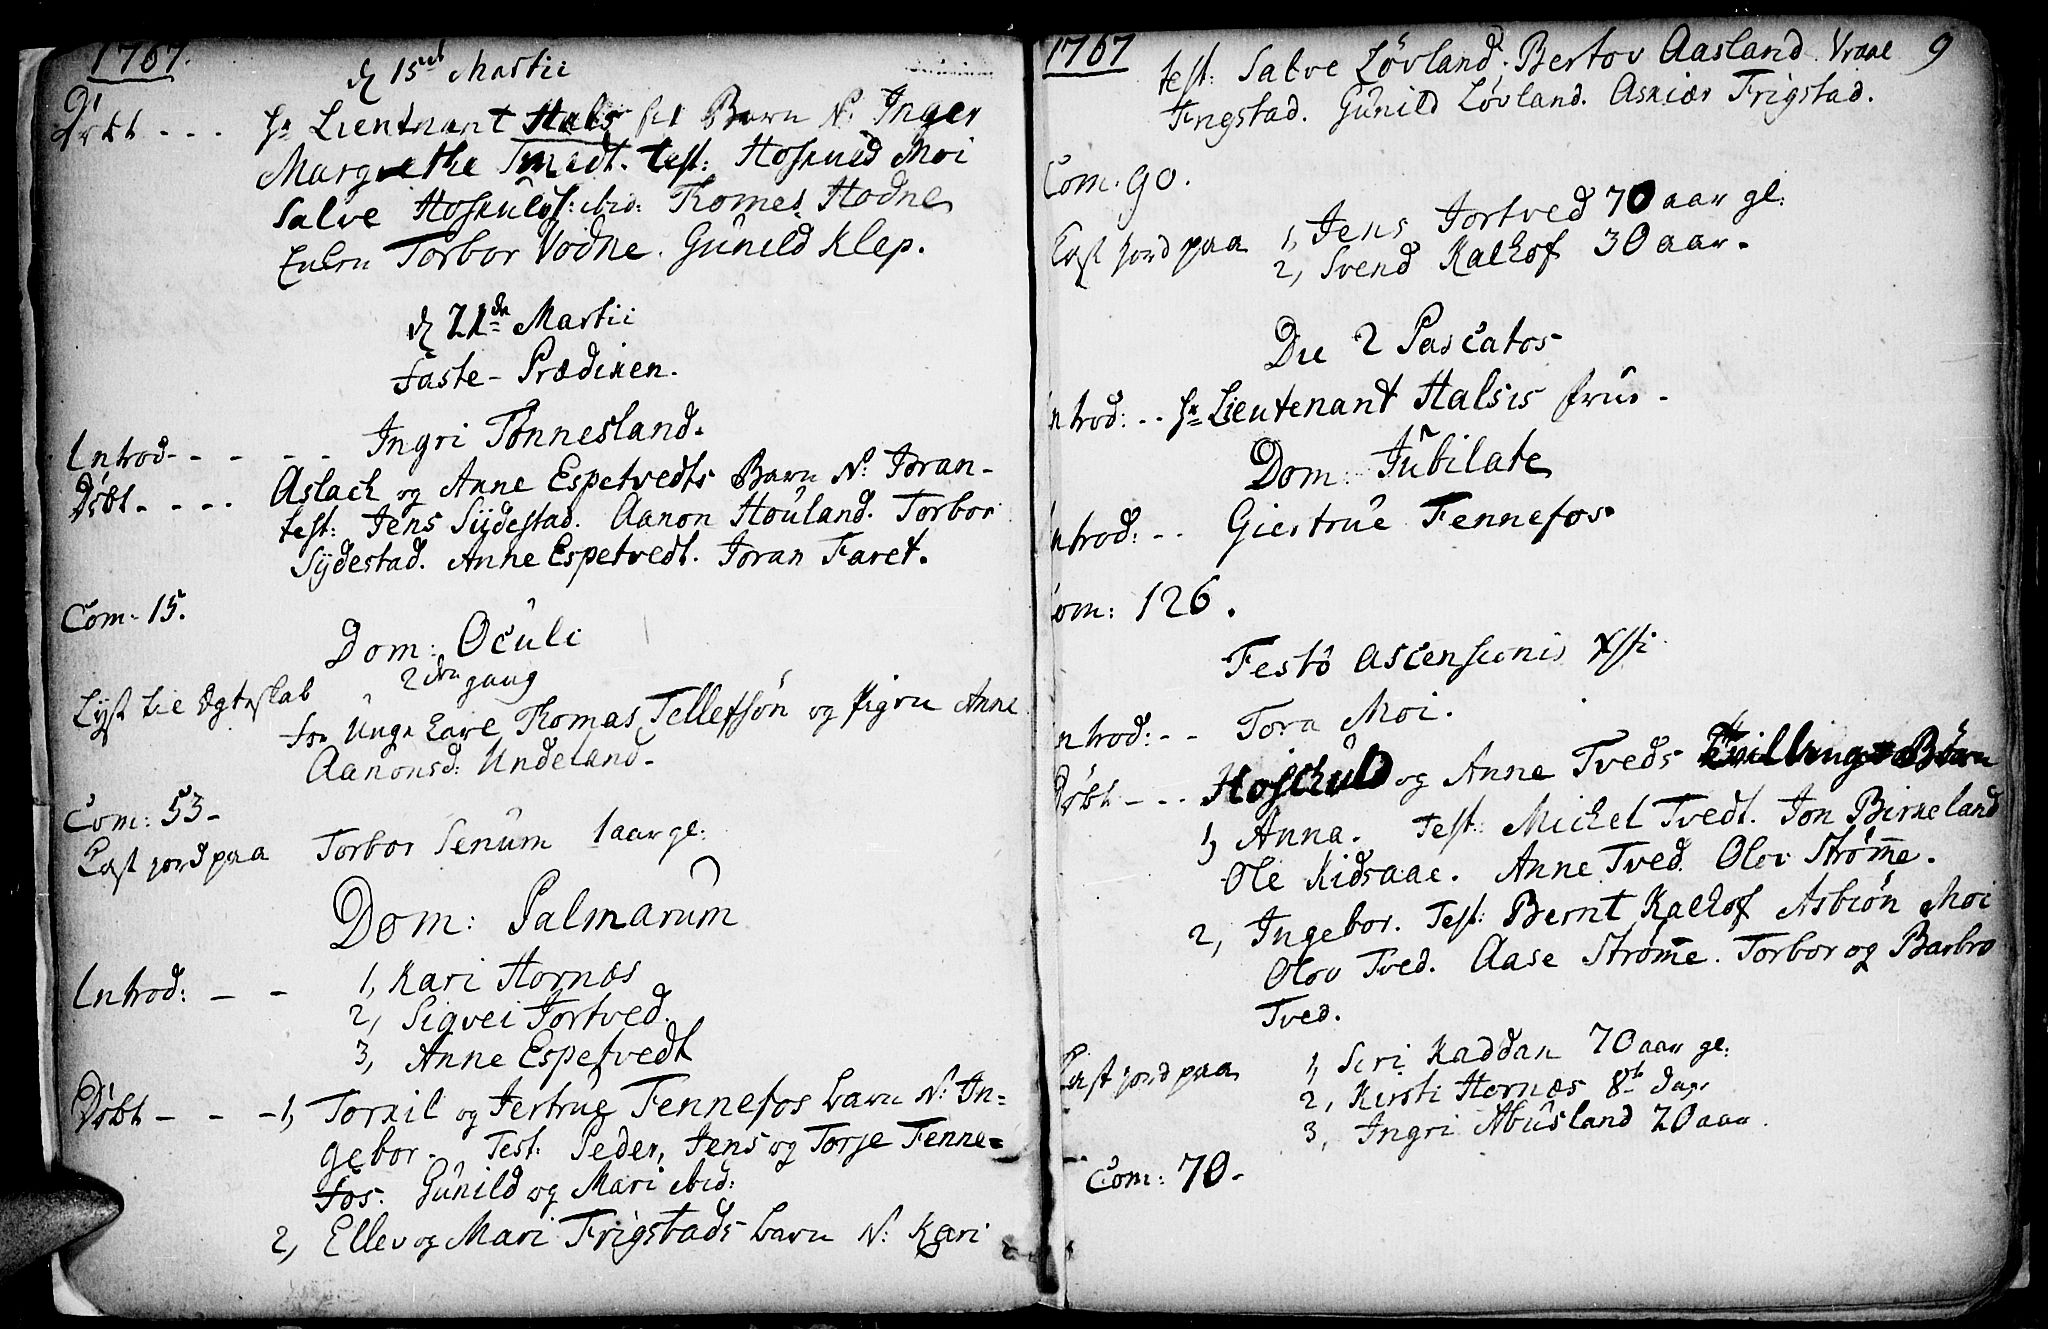 1767.
d 15de Martii
Døbt - - - Hr Lieutnant Hals sit Barn N: Inger
Margrethe Smidt. test: Hoskuld Moi
Salve ibid: Thomes Hodne
Torbor Vodne. Gunild Klep.
d 21de Martii
Faste-Prædiken.
Introd - - - - - Ingri Tønnesland.
Døbt - - - - Aslack og Anne Espetvedts Barn N: Joran-
test: Jens Sÿdestad. Aanon Houland. Torbor
Sÿdestad. Anne Espetvedt. Joran Faret.
Com. 15.
Dom: Oculi
2den gang
Lyst til Ægteskab for Unge Karl Thomas Tellefsøn og Pigen Anne
Aanonsd: Undeland.
Com: 53-
Kast jord paa Torbor Senum 1 aar gl:
Dom: Palmarum
Introd: - - 1, Kari Hornæs
2, Sigvei Jortved.
3, Anne Espetvedt
Døbt - - - 1, Torkil og Jertrue Fennefos barn N: In=
gebor. Test: Peder, Jens og Torje Fenne=
fos. Gunild og Mari ibid:
2, Ellev og Mari Frigstads barn N: Kari
1767
9
test: Salve Løvland. Bertov Aasland Vraal
Frigstad. Gunild Løvland. Askier Frigstad.
Com. 90.
Kast jord paa 1, Jens Jortved 70 aar gl:
2, Svend Kalhof 30 aar.
Die 2 Pascatos
Introd: - - Hr Lieutenant Halsis frue -
Dom: Jubilate
Introd: - - Giertrue Fennefos.
Com: 126.
Festo Ascensionis Xsti
Introd: - - Tora Moi.
Døbt - - - Hoschuld og Anne Tveds Tvillinge Børn
1, Anna. Test: Michel Tvedt. Jon Birkeland
Ole Kidsaae. Anne Tved. Olov Strøm̄e.
2, Ingebor. Test: Bernt Kalhof Asbiøn Moi
Olov Tved. Aase Strøm̄e. Torbor og Barbro
Tved.
Kast jord paa 1, Siri Kaddan 70 aar gl:
2, Kirsti Hornæs 8te dage
3, Ingri Abusland 20 aar.
Com: 70-